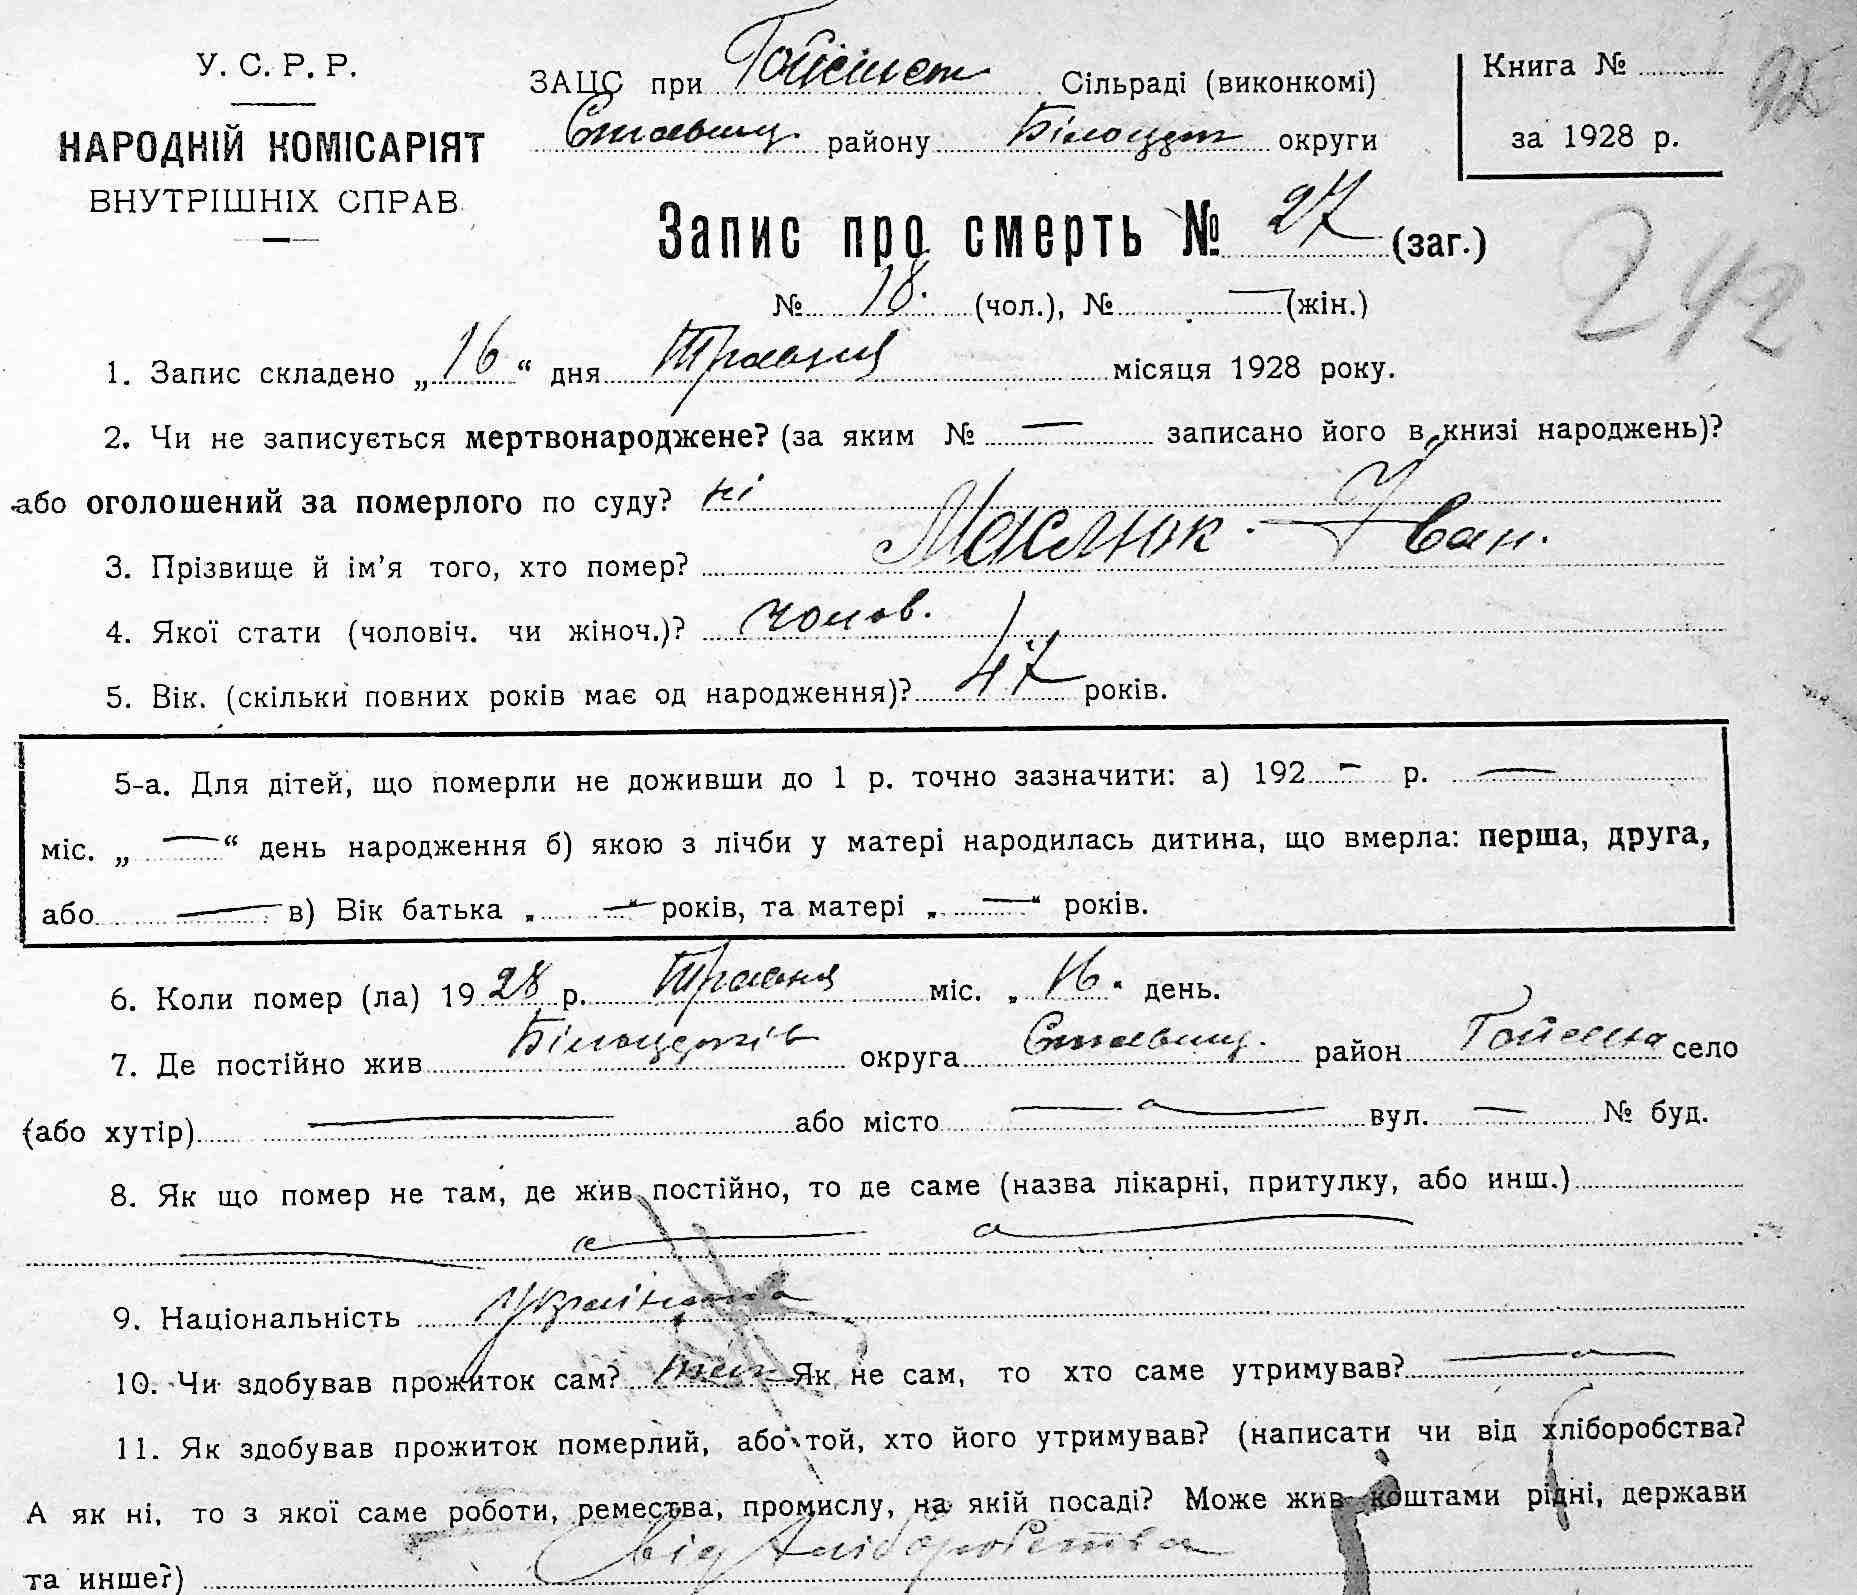 У. С. Р. Р.
НАРОДНІЙ КОМІСАРІЯТ
ВНУТРІШНІХ СПРАВ
ЗАЦС при Сільраді (виконкомі)
Ставищ. району Білоцерк округи
Книга №
за 1928 р.
95
Запис про смерть № 27 (заг.)
242
№ 18. (чол.), № — (жін.)
1. Запис складено „16“ дня Травня місяця 1928 року.
2. Чи не записується мертвонароджене? (за яким № — записано його в книзі народжень)?
або оголошений за померлого по суду? ні
3. Прізвище й ім’я того, хто помер? Маслюк Іван.
4. Якої стати (чоловіч. чи жіноч.)? чолов.
5. Вік. (скільки повних років має од народження)? 47 років.
5-а. Для дітей, що померли не доживши до 1 р. точно зазначити: а) 192 — р. —
міс. „ — “ день народження б) якою з лічби у матері народилась дитина, що вмерла: перша, друга,
або — в) Вік батька „ — “ років, та матері „ — “ років.
6. Коли помер (ла) 1928 р. Травня міс. „16“ день.
7. Де постійно жив Білоцерків округа Ставищ. район село
(або хутір) — або місто — вул. — № буд.
8. Як що помер не там, де жив постійно, то де саме (назва лікарні, притулку, або инш.)
—
9. Національність
10. Чи здобував прожиток сам? Як не сам, то хто саме утримував? —
11. Як здобував прожиток померлий, або той, хто його утримував? (написати чи від хліборобства?
А як ні, то з якої саме роботи, ремества, промислу, на якій посаді? Може жив коштами рідні, держави
та инше?) від хліборобства